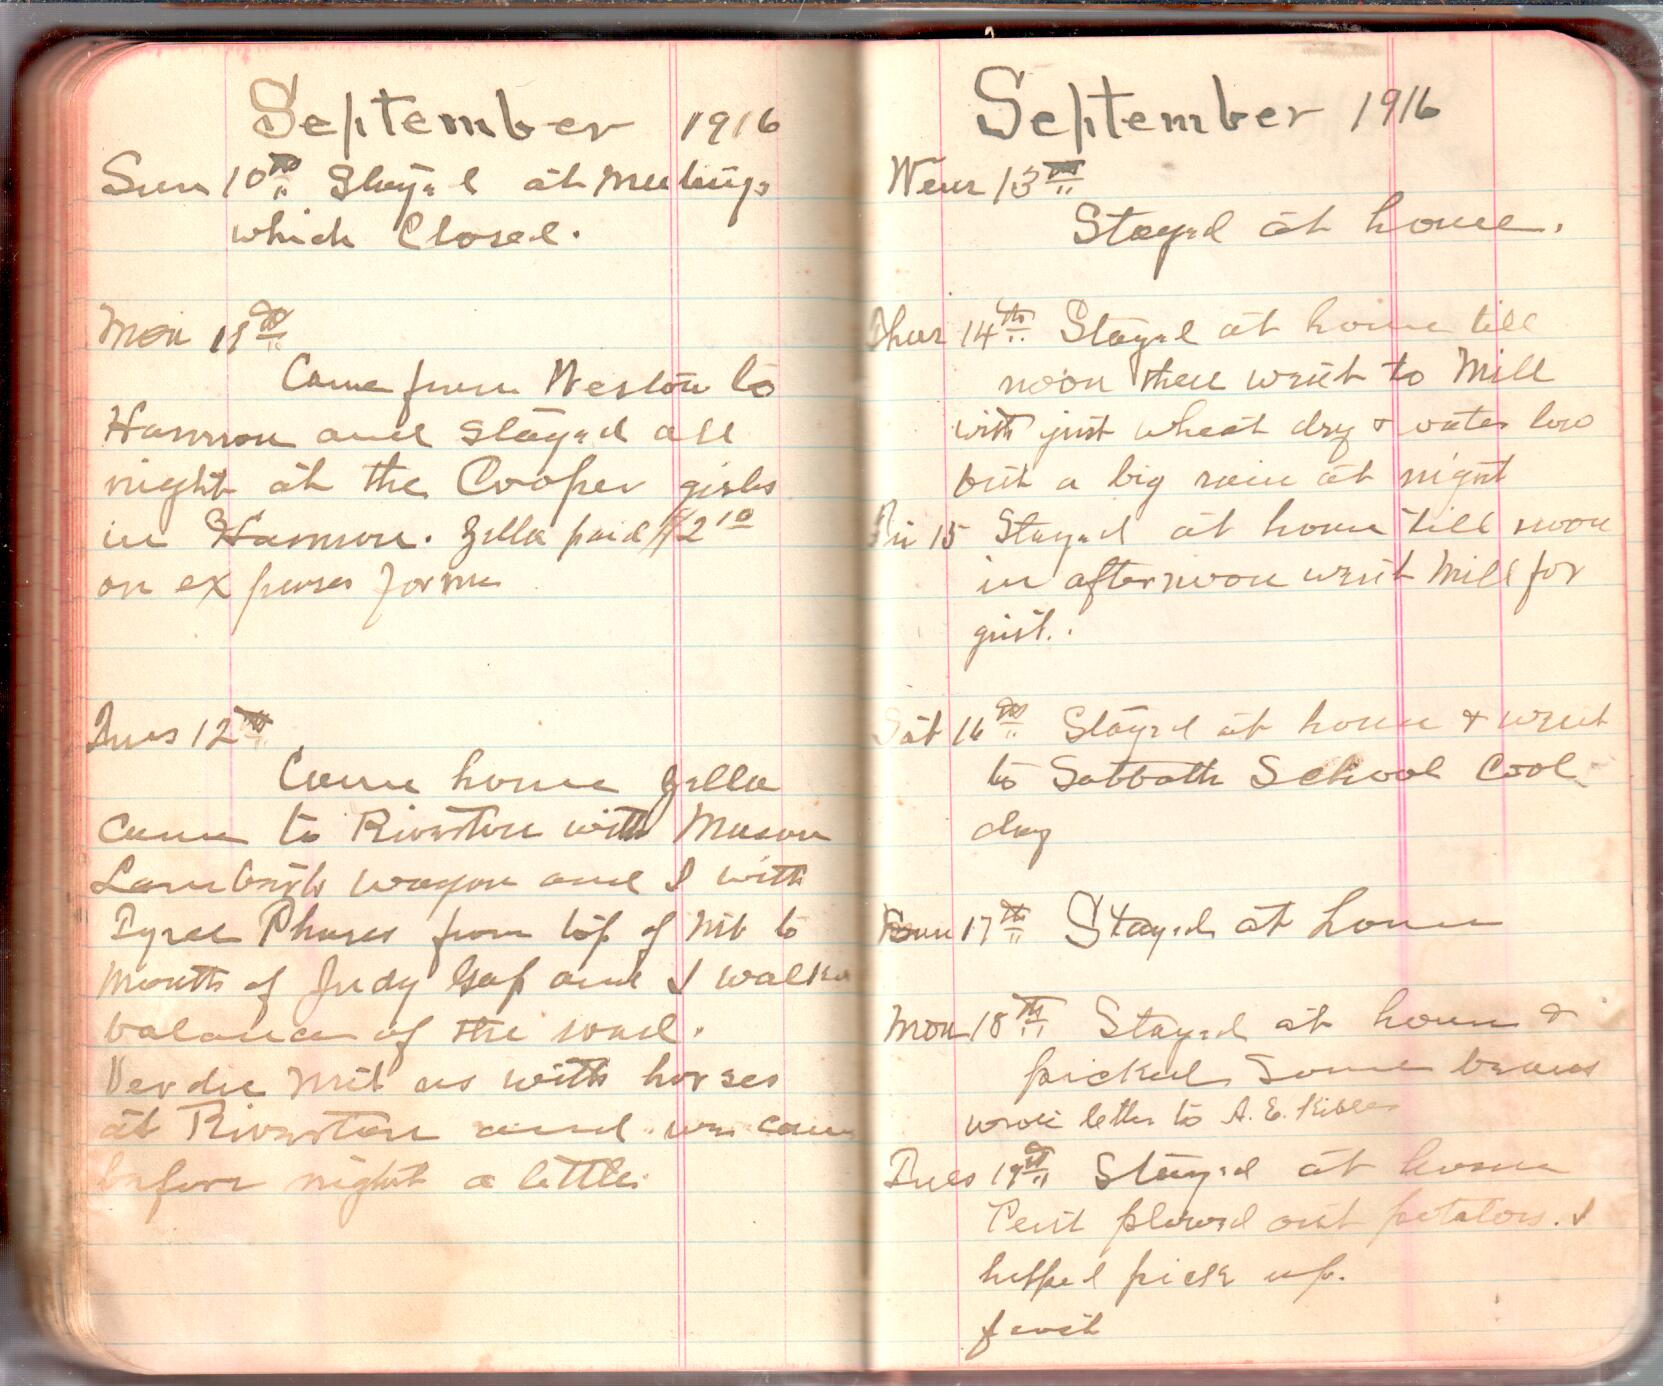 September 1916
Sun 10th Stayed at Meetings
which Closed.
Mon 11th
Came from Weston to
Harmon and stayed all
night at the Cooper girls
in Harmon. Zella paid $2 10
on expenses for me
Tues 12th
Came home Zella
came to Riverton with Mason
Lamberts wagon and I with
from top of Mt to
Mouth of Judy Gap and I walked
balance of the road.
Verdie Met us with horses
at Riverton and we came
before night a little.
September 1916
Wens 13th
Stayed at home.
Thur 14th Stayed at home till
noon then went to Mill
with grist wheat dry & water low
but a big rain at night
Fri 15 Stayed at home till noon
in afternoon went Mill for
grist.
Sat 16th Stayed at home & went
to Sabbath School Cool
day
Sun 17th Stayed at home
Mon 18th Stayed at home &
picked some beans
wrote letter to A. E.
Tues 19th Stayed at home
plowed out potatoes. I
helped pick up.